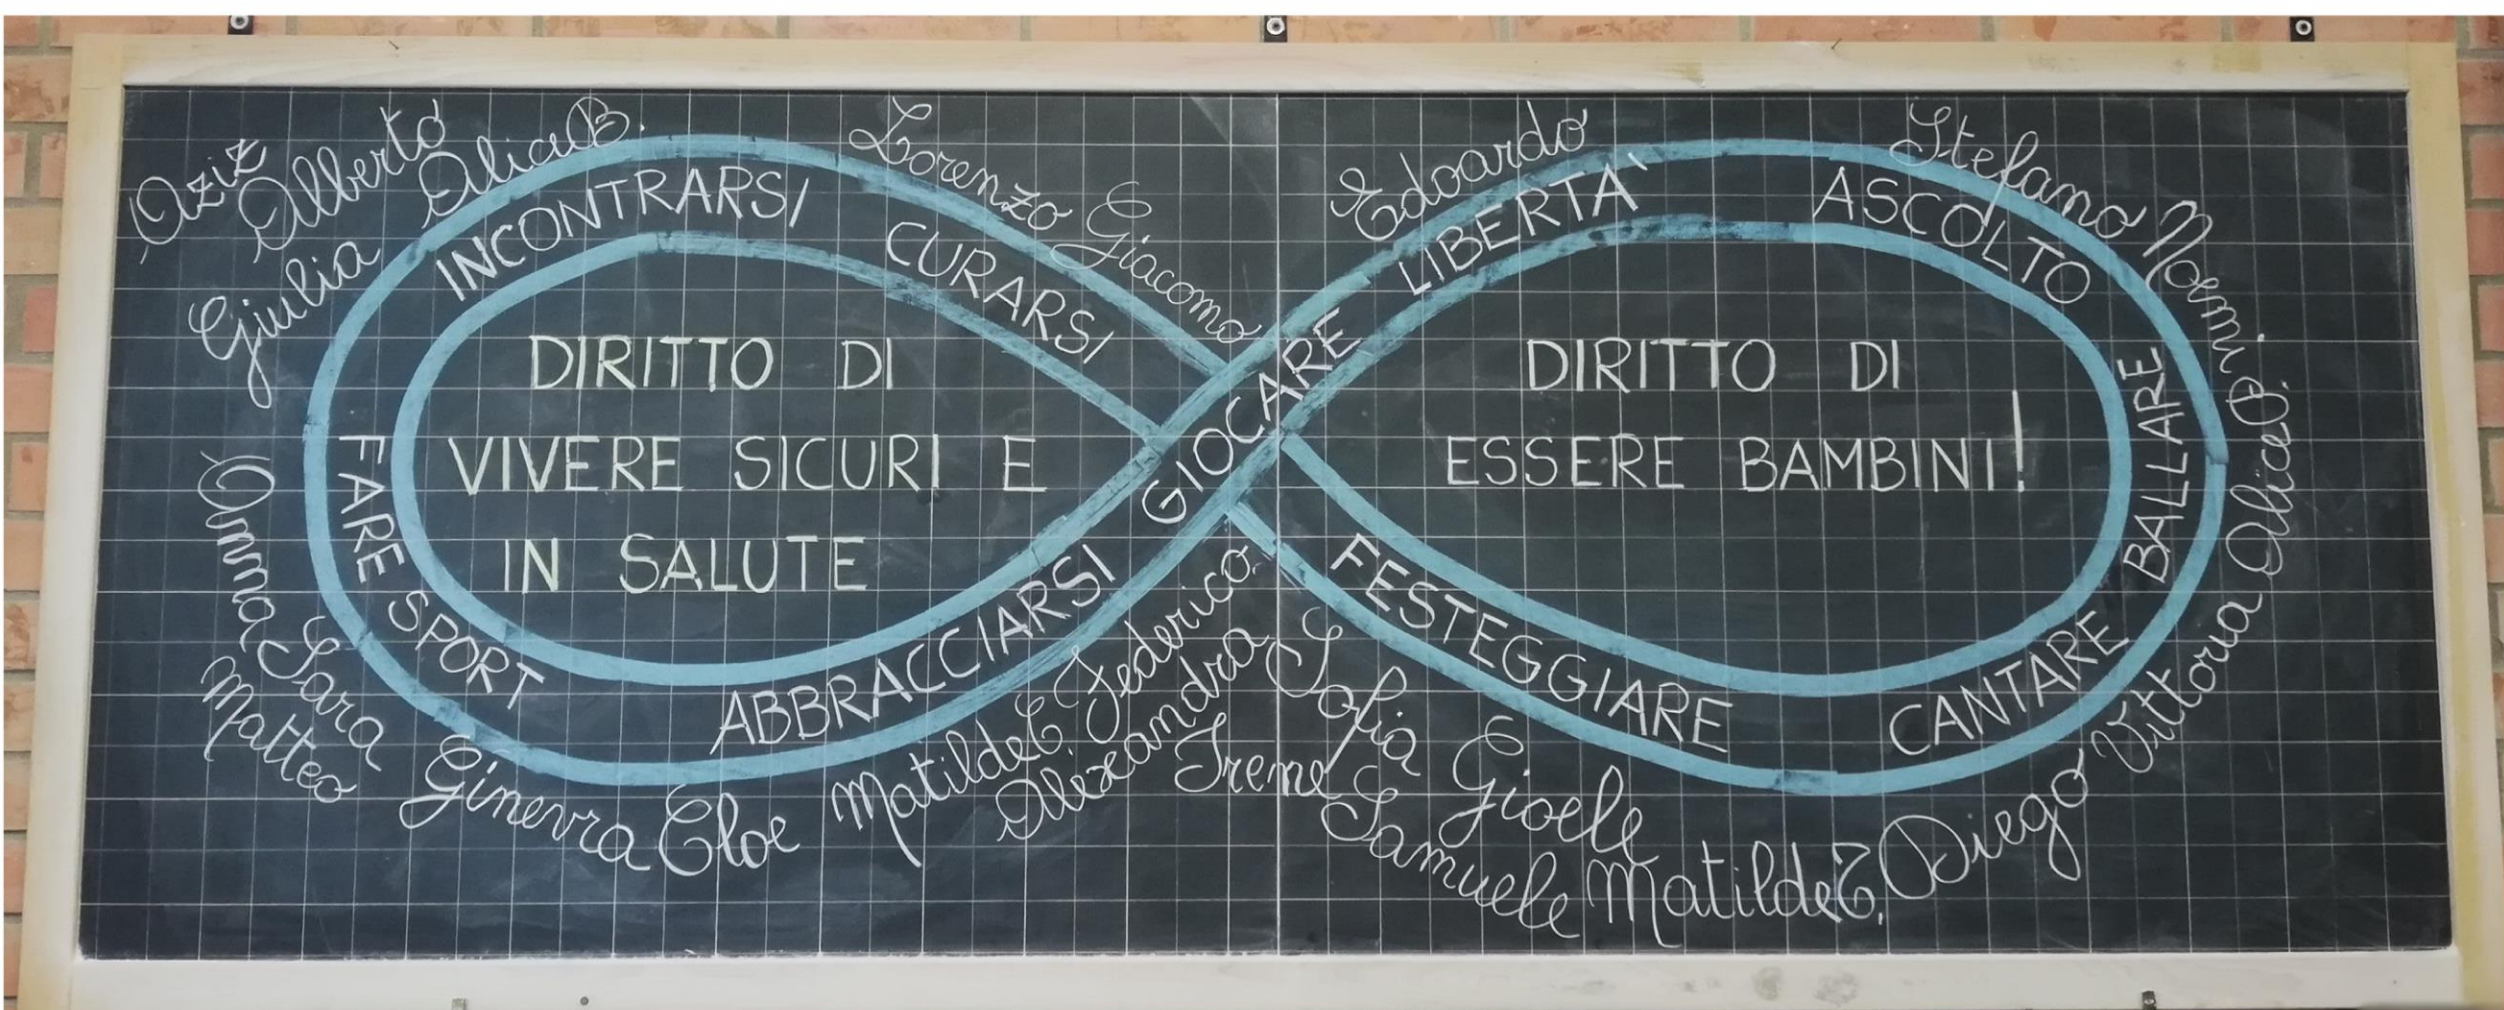 Aziz
Alberto
Alice B.
Giulia
Lorenzo
Giacomo
Edoardo
Stefano
Noemi
Alice P.
INCONTRARSI
CURARSI
LIBERTA'
ASCOLTO
GIOCARE
BALLARE
DIRITTO DI
VIVERE SICURI E
IN SALUTE
DIRITTO DI
ESSERE BAMBINI!
FARE SPORT
ABBRACCIARSI
FESTEGGIARE
CANTARE
Anna
Sara
Matteo
Ginevra
Cloe
Matilde C.
Federico
Alexandra
Irene
Sofia
Gioele
Samuele
Matilde T.
Diego
Vittoria